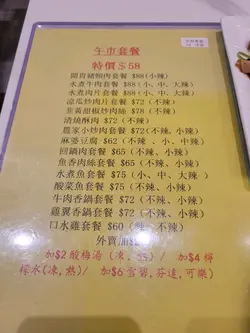 午市套餐
特價$58
開胃豬頸肉套餐 $88(小辣)
水煮牛肉套餐 $88(小、中、大辣)
水煮肉片套餐 $88(小、中、大辣)
涼瓜炒肉片套餐 $72(不辣)
韭黃甜椒炒肉絲 $78(不辣)
清燒酥肉 $72(不辣)
農家小炒肉套餐 $72(不辣、小辣)
麻婆豆腐 $62(不辣、小辣)
回鍋肉套餐 $75(不辣、小辣)
魚香肉絲套餐 $75(不辣、小辣)
水煮魚套餐 $75(小、中、大辣)
酸菜魚套餐 $75(不辣、小辣)
牛肉香鍋套餐 $72(不辣、小辣)
雞翼香鍋套餐 $72(不辣、小辣)
口水雞套餐 $60(不辣、小辣)
外賣加
加$2酸梅湯(凍,熱)/ 加$4檸
檬水(凍,熱)/ 加$6雪碧,芬達,可樂)